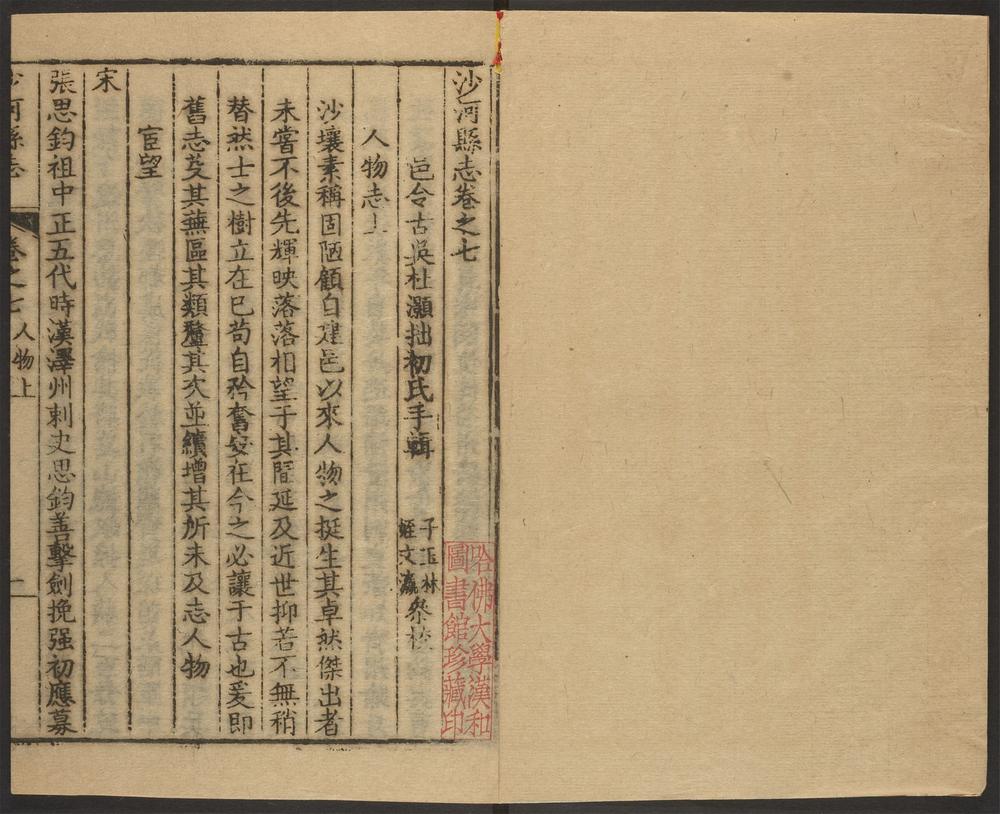 沙河縣志卷之七
邑令古吳杜灝拙初氏手輯
子玉林
姪文瀛
叅校
人物志上
沙壤素稱固陋顧自建邑以來人物之挺生其卓然傑出者
未嘗不後先輝映落落相望于其間延及近世抑若不無稍
替然士之樹立在已苟自矜奮安在今之必讓于古也爰即
舊志芟其蕪區其類釐其次並續增其所未及志人物
宦望
宋
張思鈞祖中正五代時漢澤州刺史思鈞善擊劍挽强初應募
沙河縣志
卷之七
人物上
一
哈佛大學漢和
圖書館珍藏印